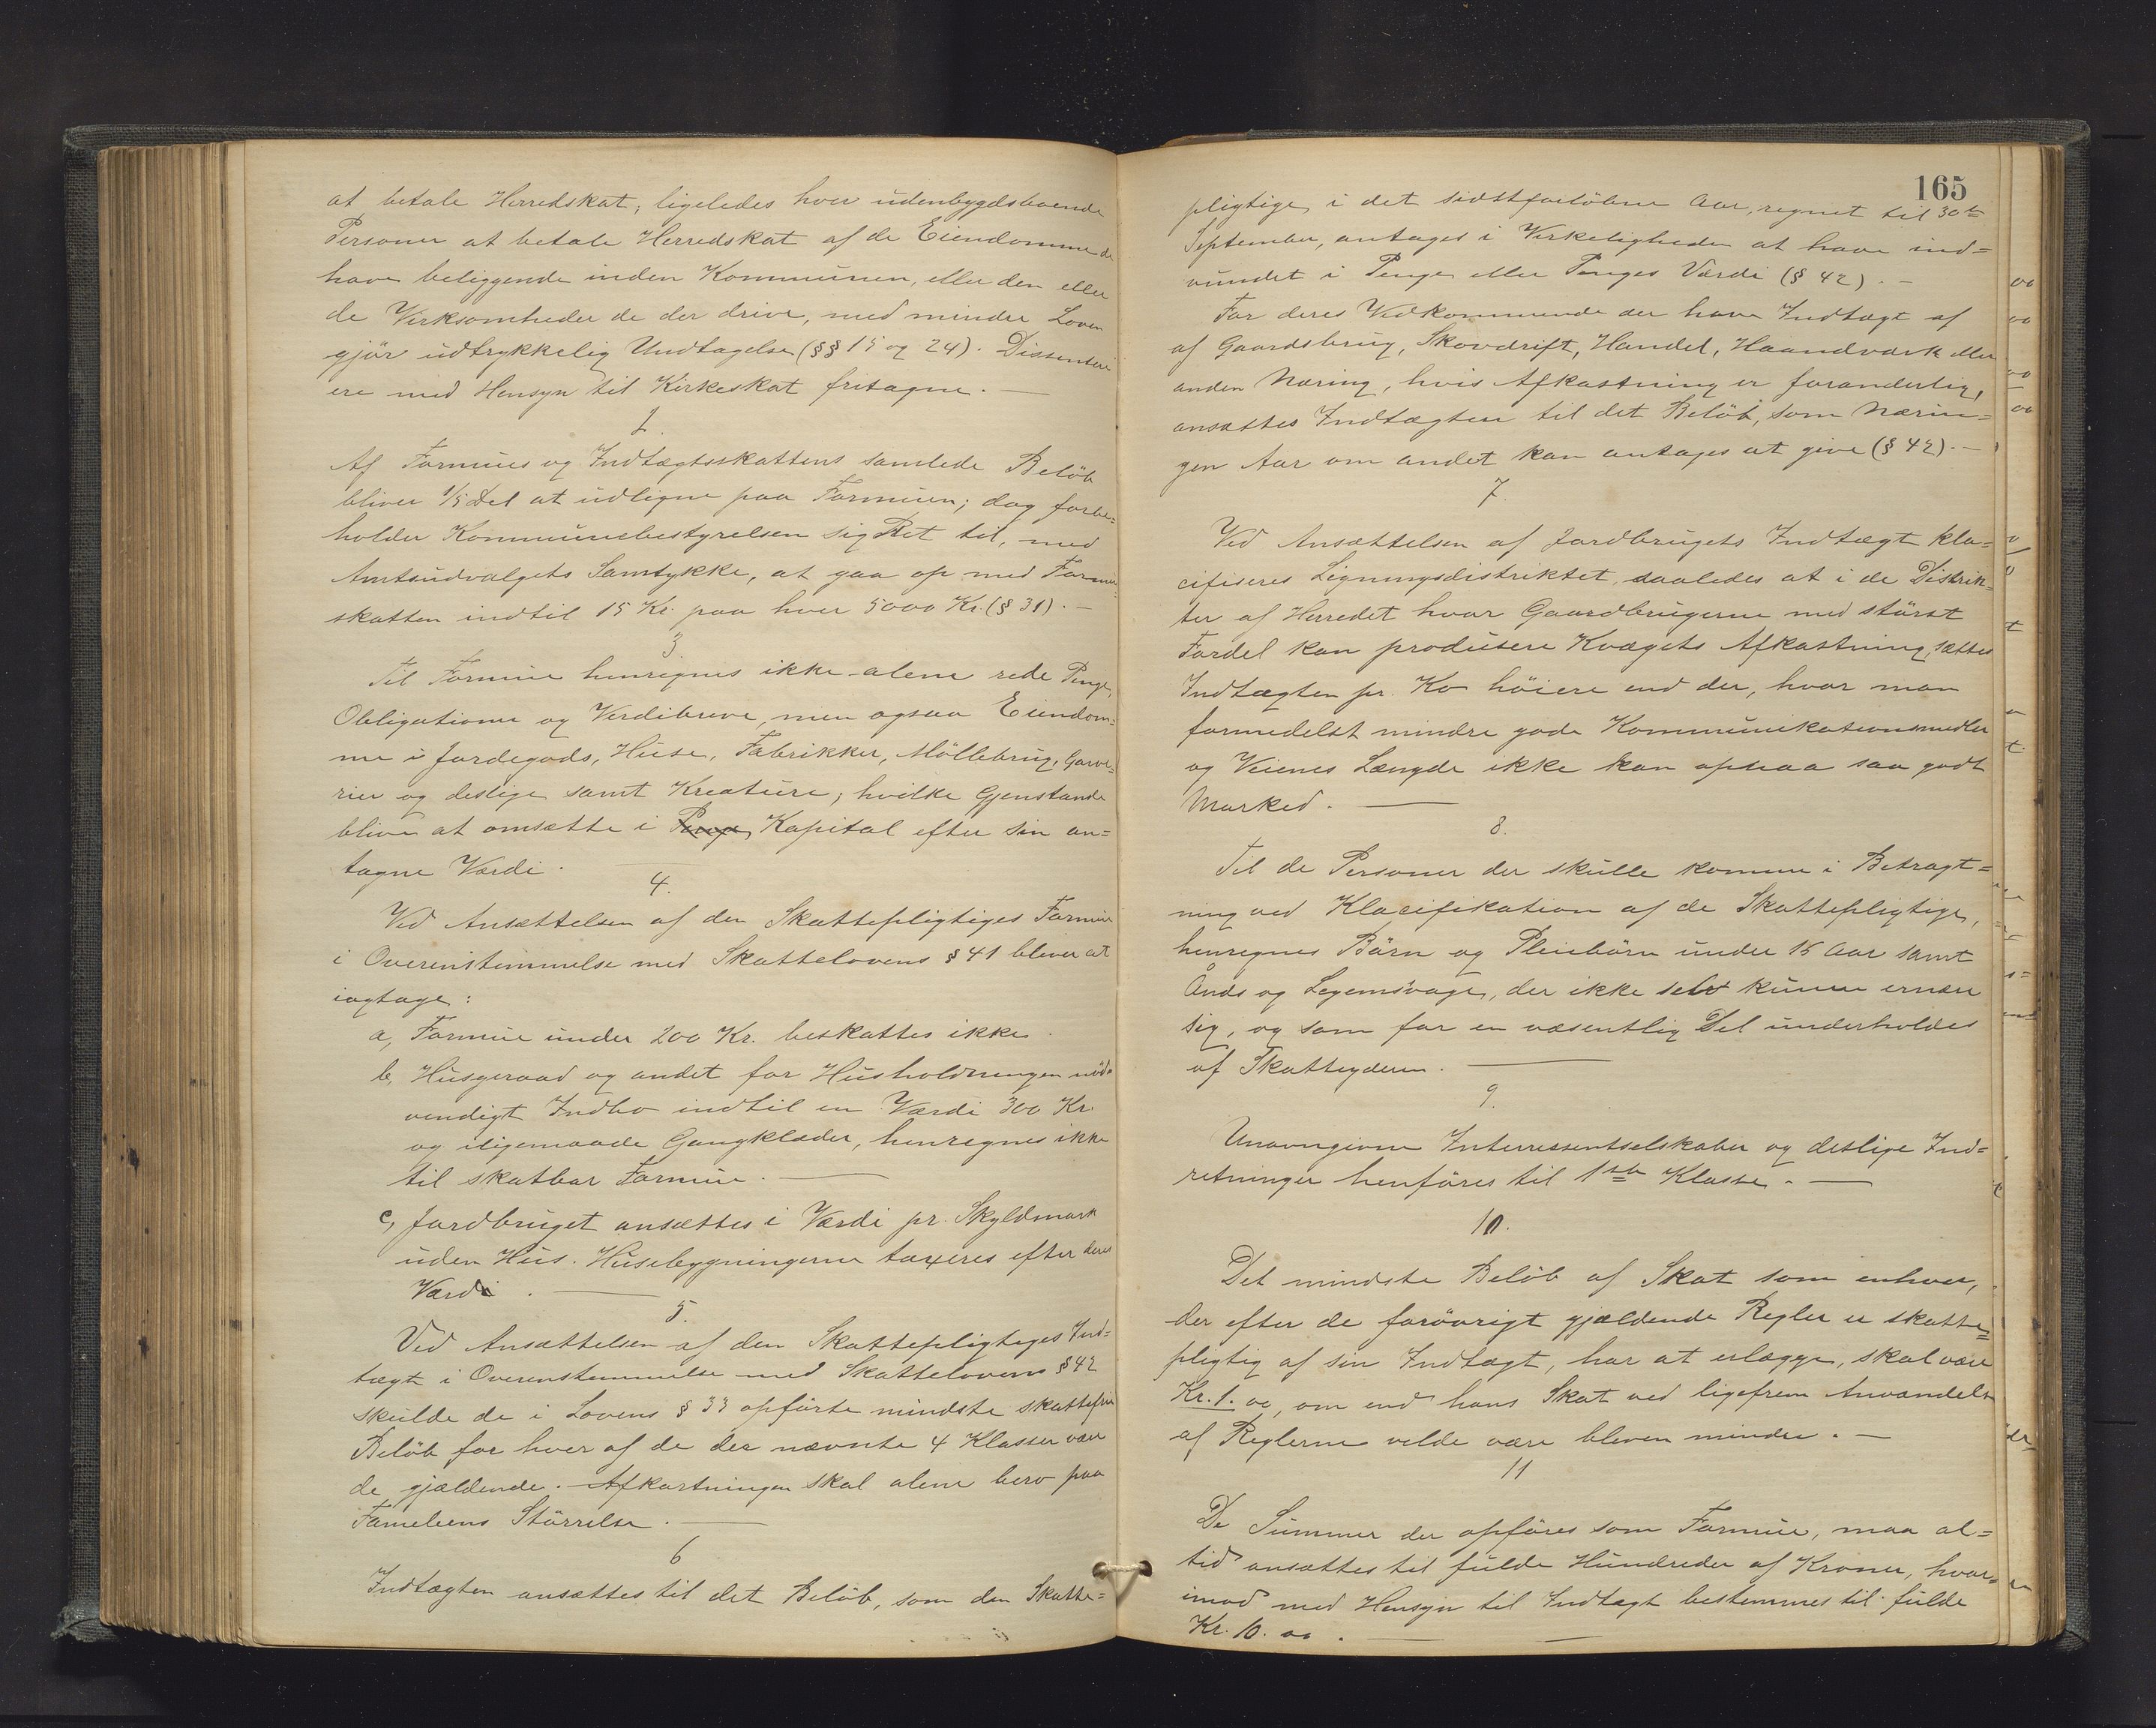 at betale Herredskat; ligeledes hver udenbygdsboende
Personer at betale Herredskat af de Eiendomme de
have beliggende inden Kommunen, eller den eller
de Virksomheder de der drive, med mindre Loven
gjør udtrykkelig Undtagelse (§§ 15 og 24). Dissentere
ere med Hensyn til Kirkeskat fritagne. —
2.
Af Formues og Indtægtsskattens samlede Beløb
bliver 1/5 Del at udligne paa Formuen; dog forbe=
holder Kommunebestyrelsen sig Ret til, med
Amtsudvalgets Samtykke, at gaa op med Formue=
skatten indtil 15 Kr. paa hver 5000 Kr. (§ 31). —
3.
Til Formue henregnes ikke alene rede Penge,
Obligationer og Verdibreve, men ogsaa Eiendom=
me i Jordegods, Huse, Fabrikker, Møllebrug, Garve=
rier og deslige samt Kreature; hvilke Gjenstande
bliver at omsætte i Penge Kapital efter sin an=
tagne Værdi. —
4.
Ved Ansættelsen af den Skattepligtiges Formue
i Overenstimmelse med Skattelovens § 41 bliver at
iagtage:
a, Formue under 200 Kr. beskattes ikke.
b, Husgeraad og andet for Husholdningen nød=
vendigt Indbo indtil en Værdi 300 Kr.
og iligemaade Gangklæder, henregnes ikke
til skatbar Formue. —
c, Jordbruget ansættes i Værdi pr. Skyldmark
uden Hus. Husebygningerne taxeres efter deres
Værdi. —
5.
Ved Ansættelsen af den Skattepligtiges Ind=
tægt i Overenstemmelse med Skattelovens § 42
skulde de i Lovens § 33 opførte mindste skattefrie
Beløb for hver af de der nævnte 4 Klasser være
de gjældende. Afkortningen skal alene bero paa
Familiens Størrelse. —
6
Indtægten ansættes til det Beløb, som den Skatte=
165
pligtige, i det sidstforløbne Aar, regnet til 30te
September, antages i Virkeligheden at have ind=
vundet i Penge eller Penges Værdi (§ 42). —
For deres Vedkommende der have Indtægt af
af Gaardsbrug, Skovdrift, Handel, Haandværk eller
anden Næring, hvis Afkastning er foranderlig,
ansættes Indtægten til det Beløb, som Nærin=
gen Aar om andet kan antages at give (§ 42). —
7.
Ved Ansættelsen af Jordbrugets Indtægt kla=
cifiseres Ligningsdistriktet, saaledes at i de Distrik=
ter af Herredet hvor Gaardbrugerne med størst
Fordel kan produsere Kvægets Afkastning, sættes
Indtægten pr. Ko høiere end der, hvor man
formedelst mindre gode Kommunikationsmidler
og Veienes Længde ikke kan opnaa saa godt
Marked. —
8.
Til de Personer der skulle komme i Betragt=
ning ved Klacifikation af de Skattepligtige,
henregnes Børn og Pleiebørn under 15 Aar samt
Ånds og Legemsvage, der ikke selv kunne ernære
sig, og som for en væsentlig Del underholdes
af Skatteyderen. —
9.
Unavngivne Interressentselskaber og deslige Ind=
retninger henføres til 1ste Klasse. —
10.
Det mindste Beløb af Skat som enhver,
der efter de forøvrigt gjældende Regler er skatte=
pligtig af sin Indtægt, har at erlægge, skal være
Kr. 1. 00, om end hans Skat ved ligefrem Anvendelse
af Reglerne vilde være bleven mindre. —
11
De Summer der opføres som Formue, maa al=
tid ansættes til fulde Hundreder af Kroner, hvor=
imod med Hensyn til Indtægt bestemmes til fulde
Kr. 10. 00. —